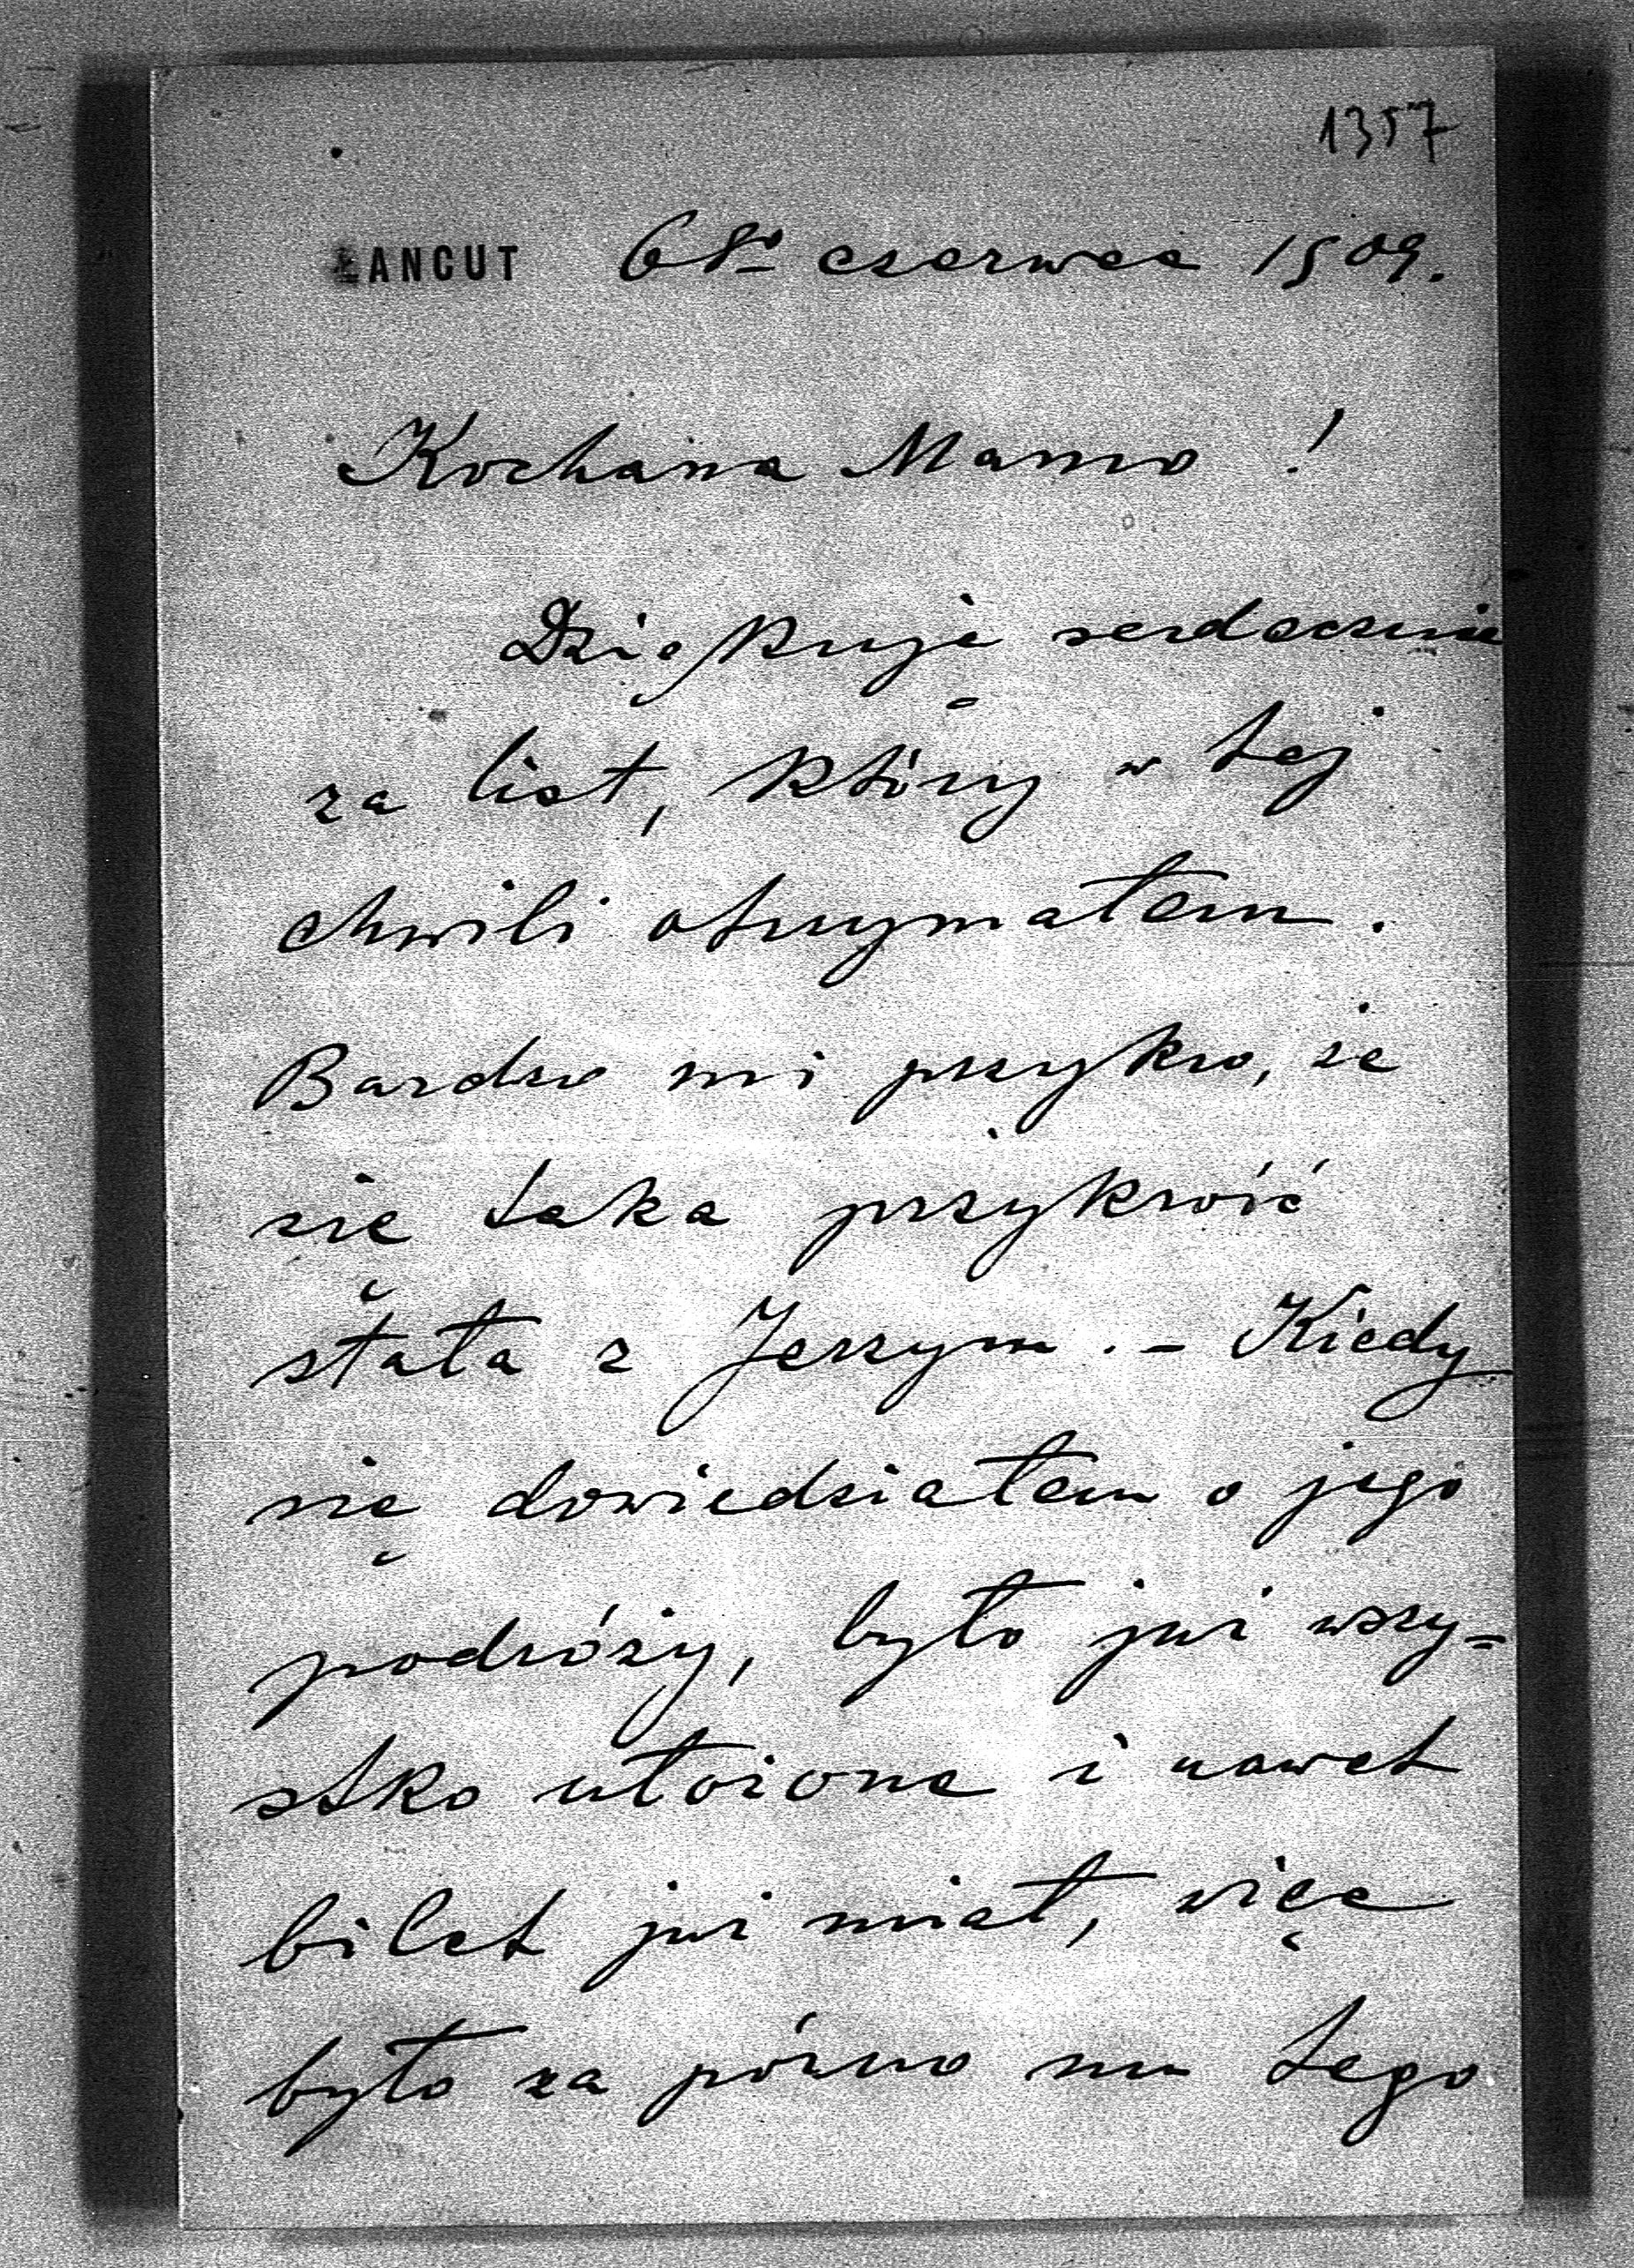 1357
ŁANCUT 6go czerwca 1909.
Kochana Mamo!
Dziękuję serdecznie
za list, który w tej
chwili otrzymałem.
Bardzo mi przykro, że
się taka przykrość
stała z Jerzym. – Kiedy
się dowiedziałem o jego
podróży, było już wszy=
stko ułożone i nawet
bilet już miał, więc
było za późno mu tego